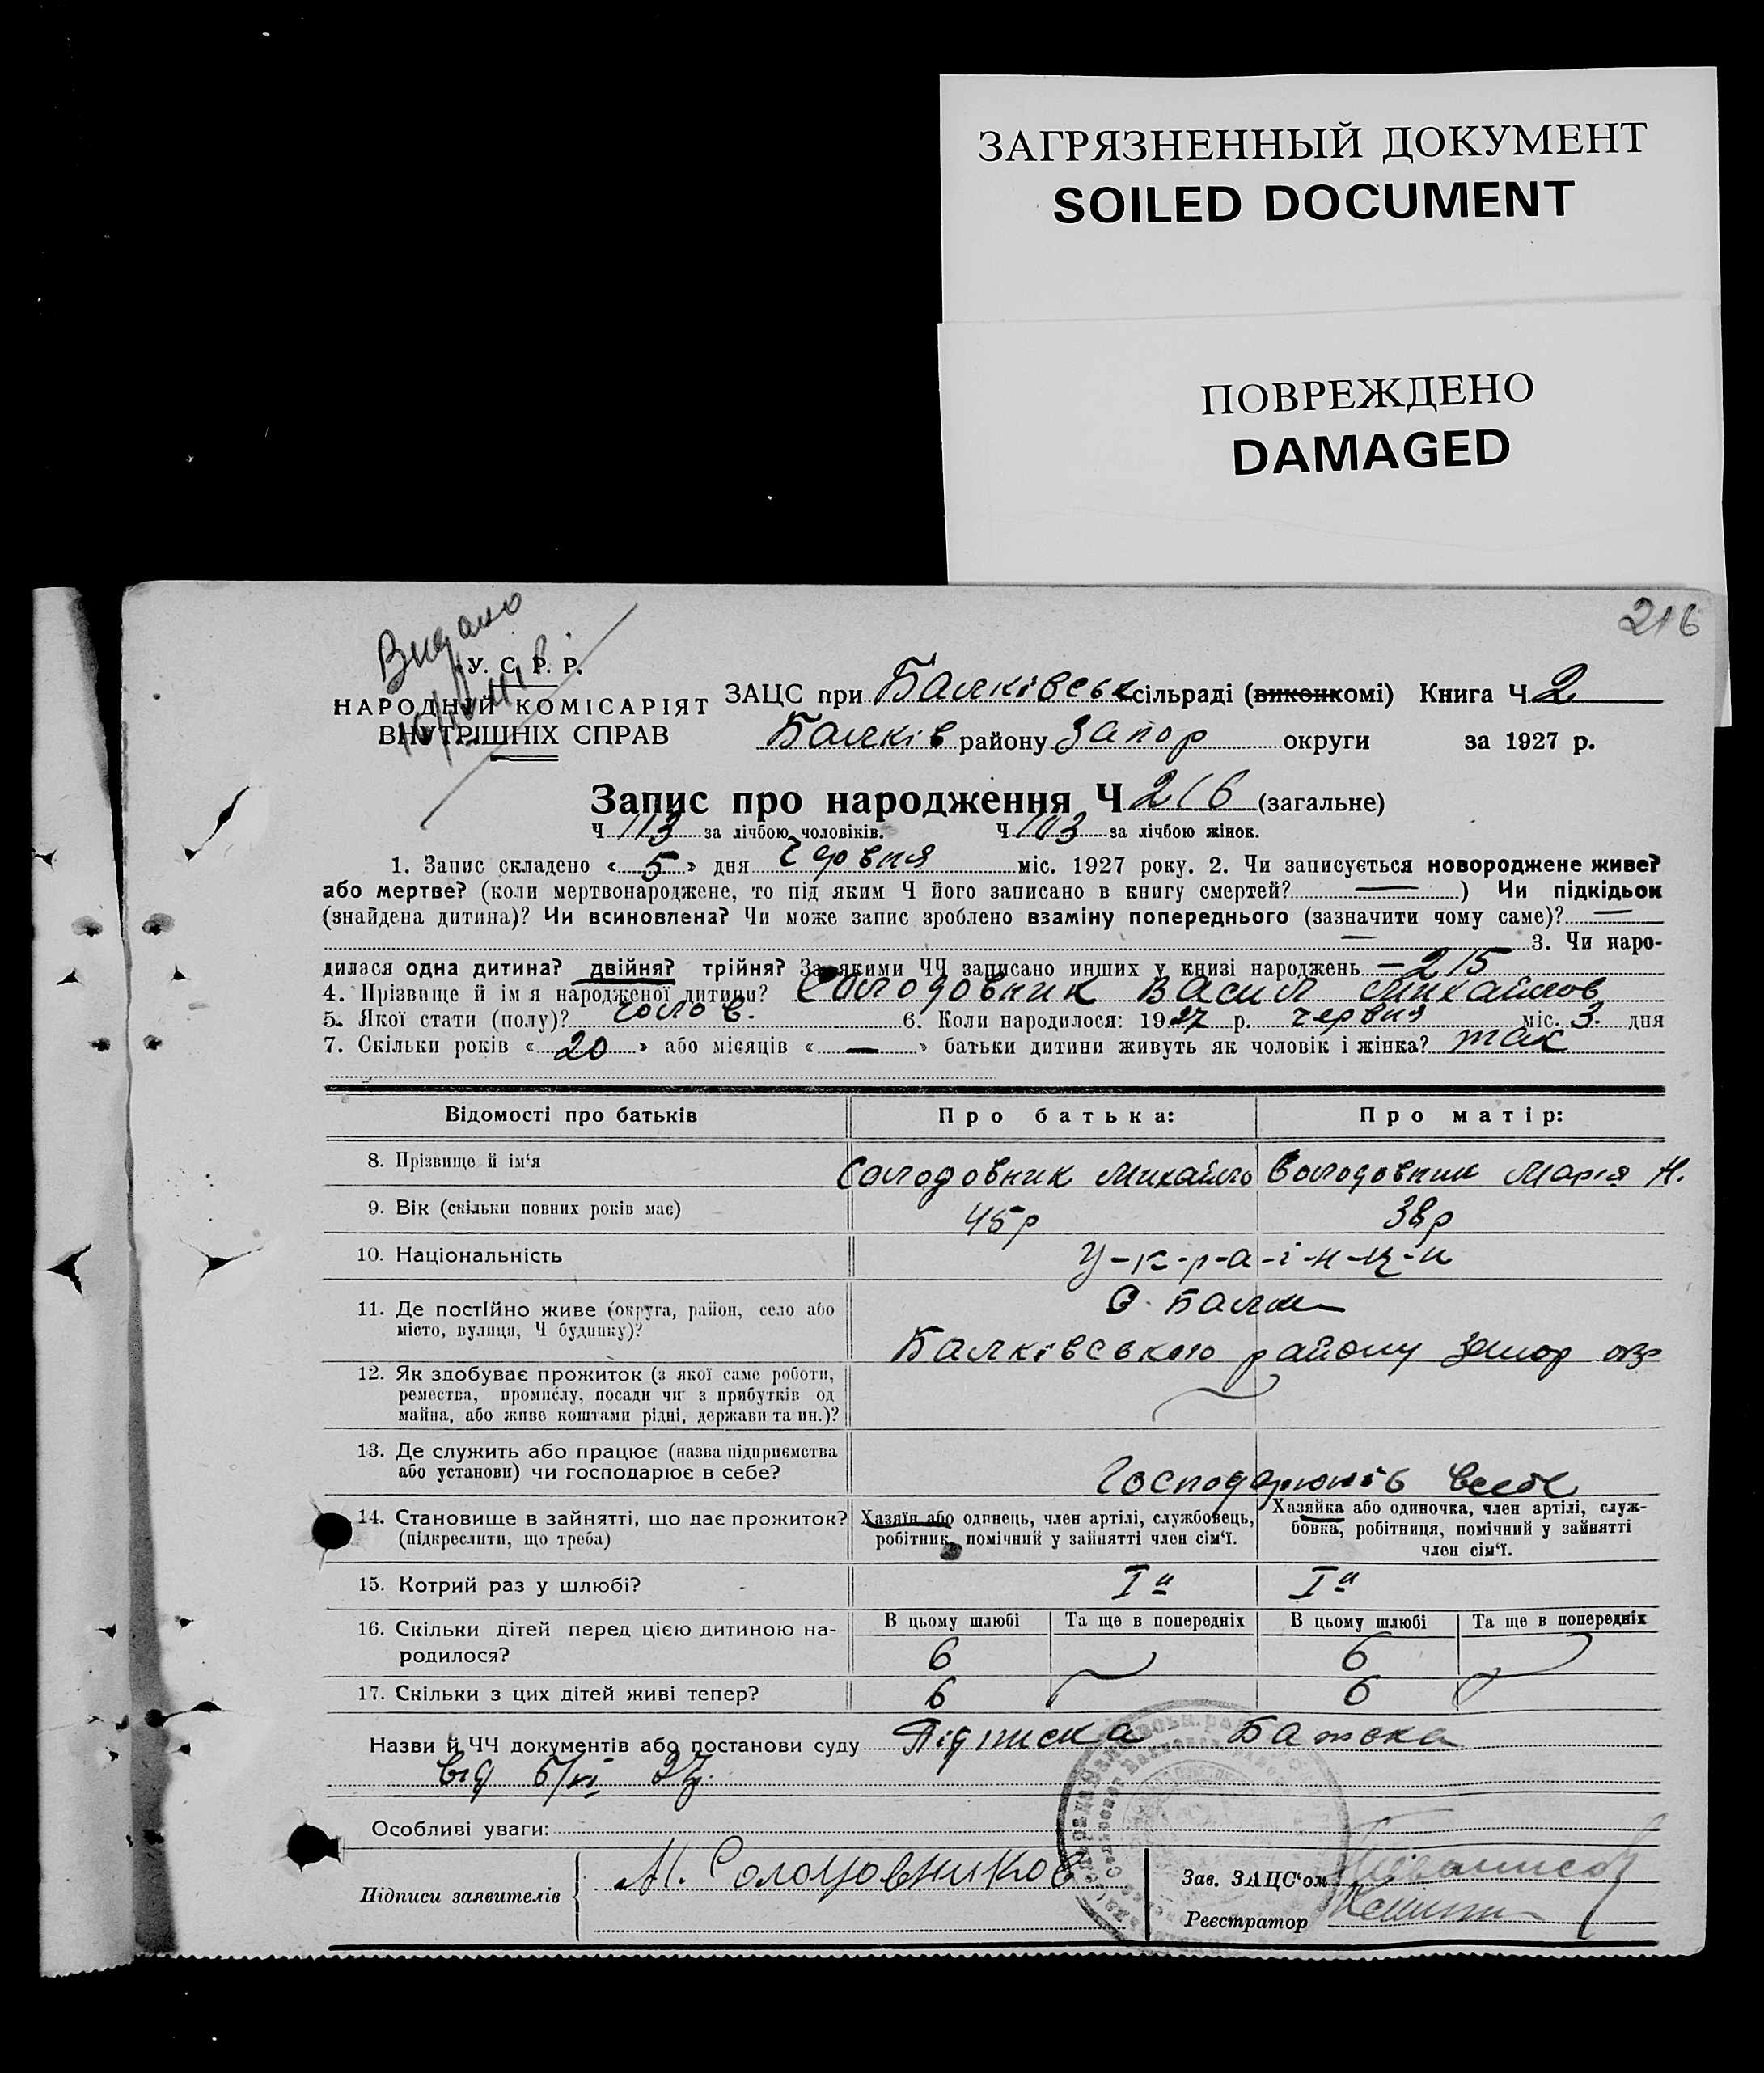 ЗАГРЯЗНЕННЫЙ ДОКУМЕНТ
SOILED DOCUMENT
ПОВРЕЖДЕНО
DAMAGED
216
Видано
У. С. Р. Р.
НАРОДНІЙ КОМІСАРІЯТ
ВНУТРІШНІХ СПРАВ
ЗАЦС при Балківськ сільраді (виконкомі) Книга Ч 2
Балків району Запор округи за 1927 р.
Запис про народження Ч 216 (загальне)
Ч 113 за лічбою чоловіків. Ч 103 за лічбою жінок.
1. Запис складено « 5 » дня червня міс. 1927 року. 2. Чи записується новороджене живе?
або мертве? (коли мертвонароджене, то під яким Ч його записано в книгу смертей? — ) Чи підкідьок
(знайдена дитина)? Чи всиновлена? Чи може запис зроблено взаміну попереднього (зазначити чому саме)? —
— 3. Чи наро-
дилася одна дитина? двійня? трійня? За якими ЧЧ записано инших у книзі народжень – 215
4. Прізвище й імя народженої дитини? Солодовник Васил Михайлов
5. Якої стати (полу)? чолов. 6. Коли народилося: 1927 р. червня міс. 3. дня
7. Скільки років « 20 » або місяців « — » батьки дитини живуть як чоловік і жінка? так
Відомості про батьків Про батька: Про матір:
8. Прізвище й ім‘я Солодовник Михайло Солодовник Марія Н.
9. Вік (скільки повних років має) 45р 38р
10. Національність У-к-р-а-і-н-ц-и
11. Де постійно живе (округа, район, село або
місто, вулиця, Ч будинку)?
С. Балки
Балківського району Запор окр
12. Як здобуває прожиток (з якої саме роботи,
ремества, промислу, посади чи з прибутків од
майна, або живе коштами рідні, держави та ин.)?
13. Де служить або працює (назва підприємства
або установи) чи господарює в себе?
14. Становище в зайнятті, що дає прожиток?
(підкреслити, що треба)
Хазяїн або одинець, член артілі, службовець,
робітник, помічний у зайнятті член сім‘ї.
Хазяйка або одиночка, член артілі, служ-
бовка, робітниця, помічний у зайнятті
член сім‘ї.
15. Котрий раз у шлюбі? Iй Iй
16. Скільки дітей перед цією дитиною на-
родилося?
В цьому шлюбі Та ще в попередніх В цьому шлюбі Та ще в попередніх
6 6
17. Скільки з цих дітей живі тепер? 6 6
Назви й ЧЧ документів або постанови суду Підписка Батька
від 5/VI 27.
Особливі уваги:
Підписи заявителів М. Солодовников
Зав. ЗАЦС‘ом
Реєстратор